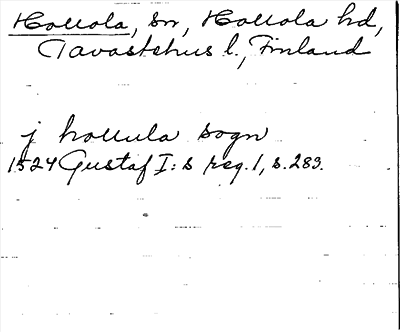 Hollola, sn, Hollola hd,
Tavastehus l., Finland
j hollula sogn
1524 Gustaf I:s reg. 1, s. 283.